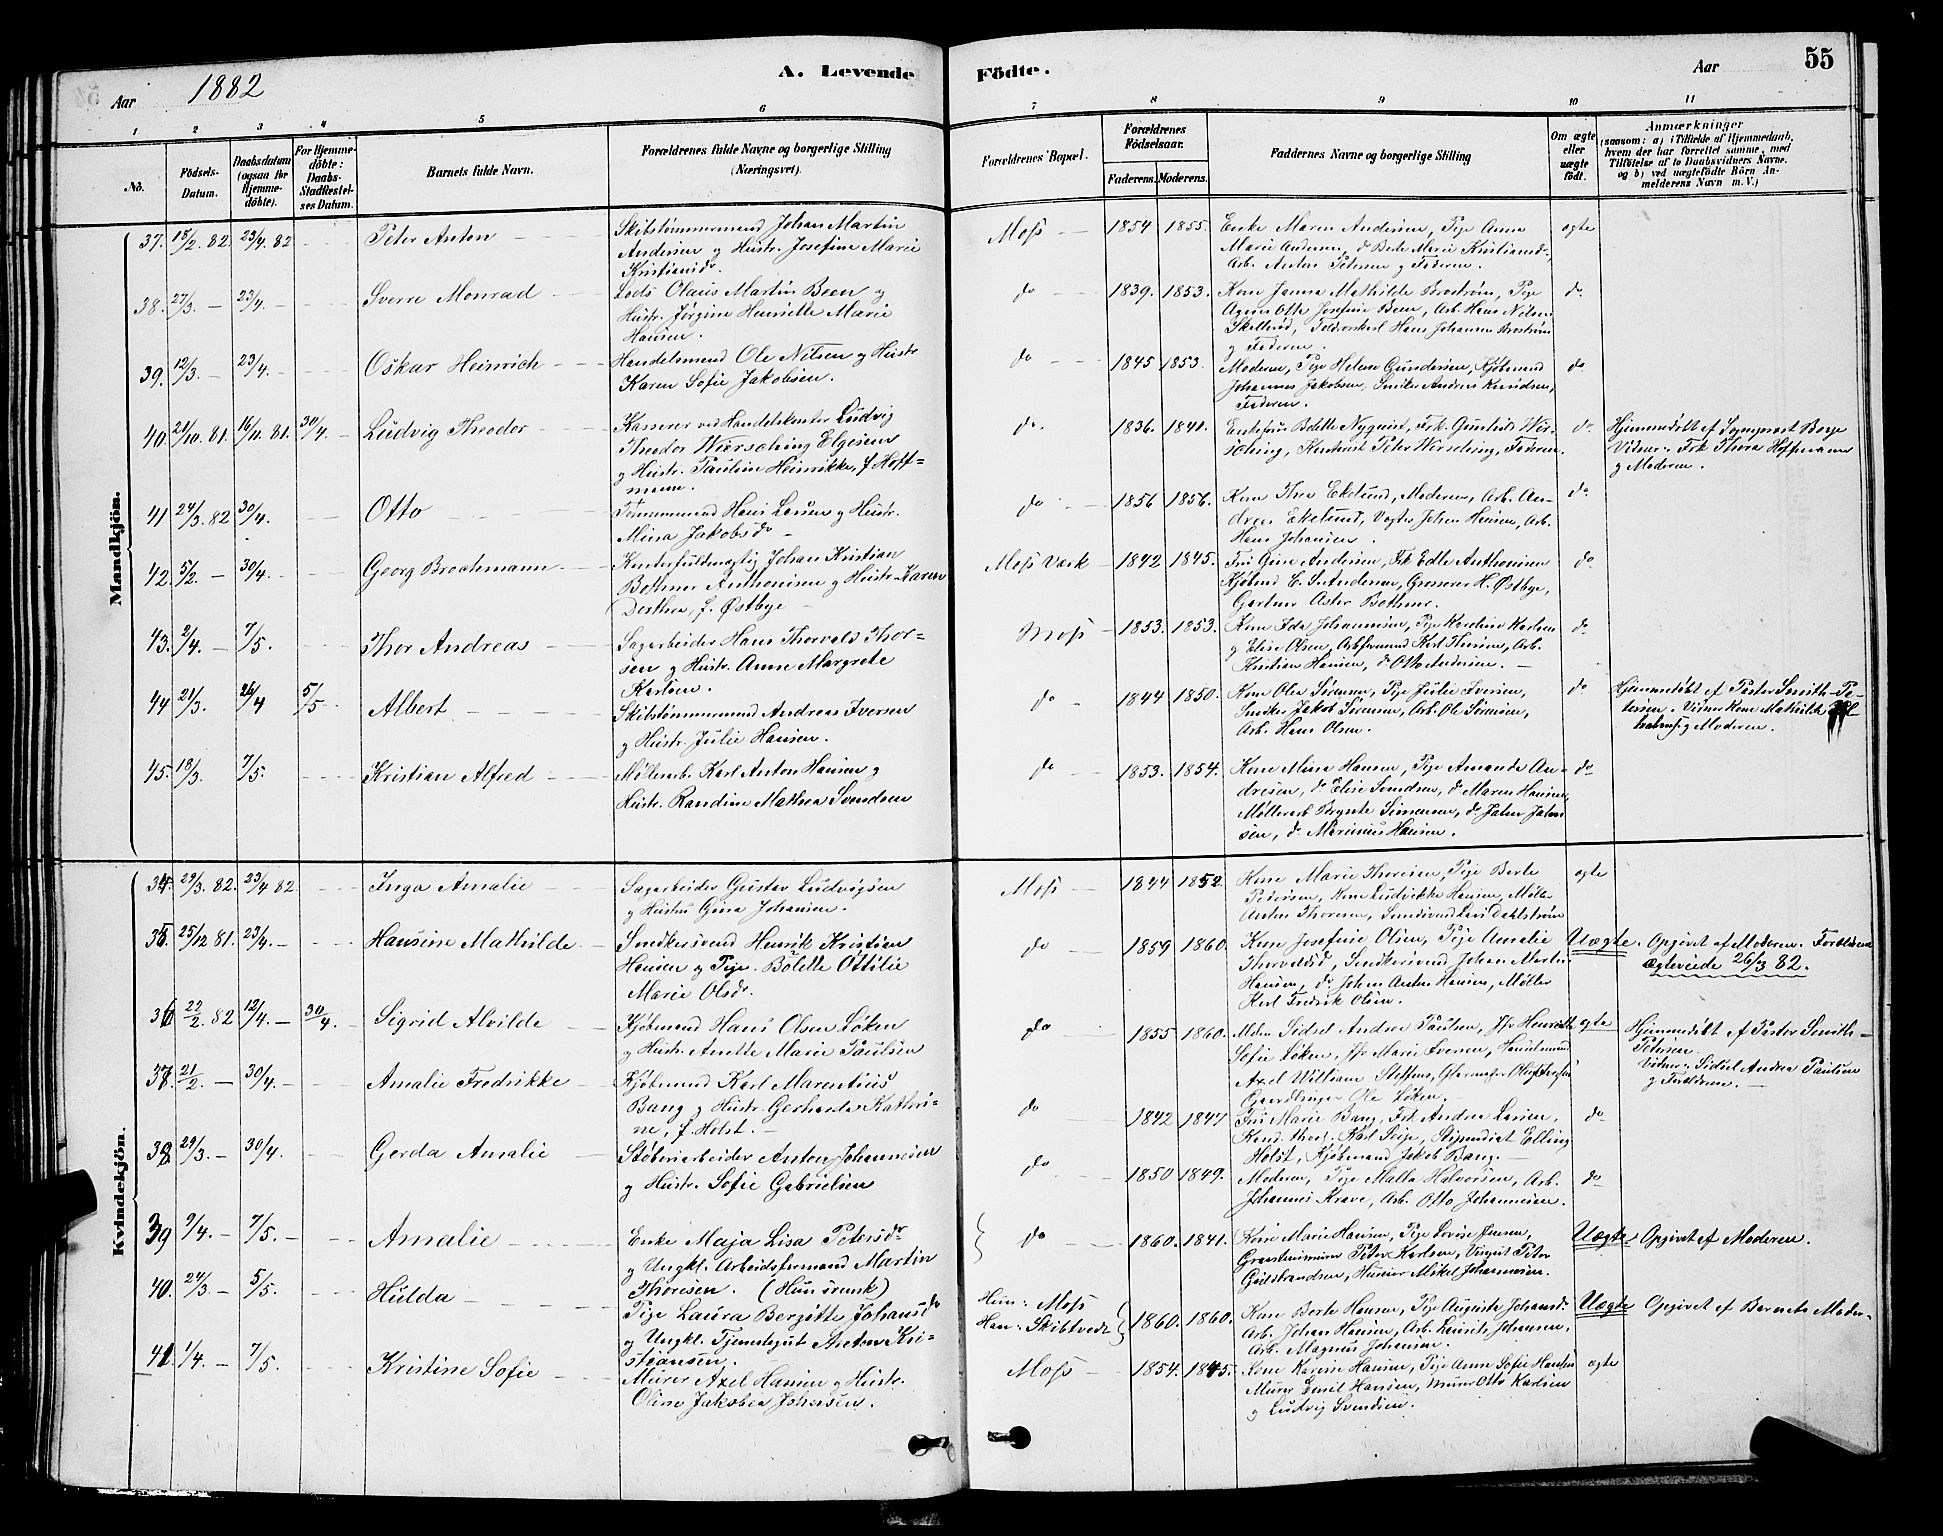 Aar 1882 A. Levende Födte. Aar 55
1 2 3 4 5 6 7 8 9 10 11
No.
Födsels-
Datum.
Daabsdatum
(ogsaa for
Hjemme-
döbte).
For Hjemme-
döbte:
Daabs-
Stadfæstel-
ses Datum.
Barnets fulde Navn.
Forældrenes fulde Navne og borgerlige Stilling
(Næringsvei).
Forældrenes Bopæl.
Forældrenes
Födselsaar.
Faderens. Moderens.
Faddernes Navne og borgerlige Stilling
Om ægte
eller
uægte
födt.
Anmærkninger
(saasom: a) i Tilfælde af Hjemmedaab,
hvem der har forrettet samme, med
Tilföielse af to Daabsvidners Navne.
og b) ved uægtefödte Börn An-
melderens Navn m. V.)
Mandkjön.
37. 18/2. 82. 23/4. 82 Peter Anton
Skibstømmermand Johan Martin
Andersen og Hustr. Josefine Marie
Kristiansdr.
Moss 1854 1855.
Enke Maren Andersen, Pige Anna
Marie Andersen, do Berte Marie Kristiansd.,
Arb. Anton Petersen og Faderen.
ægte
38. 27/3. 23/4. Sverre Monrad
Lods Olaus Martin Been og
Hustr. Jørgine Henriette Marie
Hansen.
do 1839. 1853.
Kone Janna Mathilde Brostrøm, Pige
Josefine Been, Arb. Hans Nilsen
Skallerød, Hans Johannes Brostrøm
og Faderen.
do
39. 12/3. 23/4. Oskar Heinrich
Handelsmand Ole Nilsen og Hustr
Karen Sofie Jakobsen.
do 1845 1853.
Moderen, Pige Helene Gundersen, Kjøbmand
Johannes Jakobsen, Snedker Andreas Knudsen,
Faderen.
do
40. 21/10. 81. 16/11. 81. 30/4. Ludvig Theodor
Kasserer ved Handelskontor Ludvig
Theodor Wiersching Elgesen
og Hustr. Pauline Heinrikke, f. Hoff=
mann.
do. 1836. 1840.
Enkefru Bolette Nyquist, Frk. Gunhild Wier-
sching, Kontorist Peter Wiersching, Faderen.
do
Hjemmedøbt af Sogneprest Borge
Vidner: Frk Thora Hoffmann
og Moderen.
41 24/3. 82 30/4. Otto
Tømmermand Hans Larsen og Hustr.
Mina Jakobsdr
do 1856 1856.
Kone Thea Ekelund, Moderen, Arb. An-
dreas Ekelund, Vogter Johan Hansen, Arb.
Hans Johansen.
do
42. 5/2. 30/4. Georg Brochmann
Kontorfuldmægtig Johan Kristian
Bothner Anthonisen og Hustr. Karen
Dorthea, f. Østbye
Moss Værk 1842 1845.
Fru Gine Andersen, Frk Edle Anthonisen
Kjøbmd E. S. Andersen, Grosserer H. Østbye,
Gartner Aster Bothner.
do
43. 2/4. 7/5. Thor Andreas
Sagarbeider Hans Thorvald Thor=
sen og Hustr. Anne Margrete
Karlsen.
Moss 1853. 1853.
Kone Ida Johannesen, Pige Karoline Karlsen
og Elise Olsen, Arbformand Karl Thorsen, Arb.
Kristian Hansen, do Otto Andersen.
do
44 21/3. 26/4 5/5 Albert
Skibstømmermand Andreas Iversen
og Hustr. Julie Hansen.
do 1844 1850.
Kone Olea Sørensen, Pige Julie Iversen,
Snedker Jakob Sørensen, Arb. Ole Sørensen,
Arb. Hans Olsen.
do
Hjemmedøbt af Pastor Smith-Pe-
tersen. Vidner Kone Mathilde
og Moderen.
45. 18/3. 7/5. Kristian Alfred
Møllerarb. Karl Anton Hansen og
Hustr. Randine Mathea Svendsen
do 1853. 1854.
Kone Mina Hansen, Pige Amanda An=
dresen, do Elise Svendsen, do Maren Hansen,
Møllerarb Brynte Simensen, do Johan Johan
sen, do Marinius Hansen.
do
Kvindekjön.
34. 29/3. 82. 23/4 82 Inga Amalie
Sagarbeider Gustav Ludvigsen
og Hustru Gina Johansen.
Moss 1844 1852.
Kone Marie Thoresen, Pige Berte
Pedersen, Kone Ludvikke Hansen, Møller
Anton Thoresen, Lars Dahlstrøm
ægte
35. 25/12 81. 23/4. Hansine Mathilde
Snedkersvend Henrik Kristian
Hansen og Pige Bolette Ottilie
Marie Olsdr.
do 1859 1860.
Kone Josefine Olsen, Pige Amalie
Thorvaldsd, Snedkersvend Johan Martin
Hansen, do Johan Anton Hansen, Møller
Karl Fredrik Olsen.
Uægte.
Opgivet af Moderen. Forældrene
Ægteviede 26/3 82.
36 22/2. 82 12/4. 30/4. Sigrid Alvilde
Kjøbmand Hans Olsen Løken
og Hustr. Anette Marie Paulsen
do 1855 1860.
Sidsel Andrea Paulsen, Jfr Henriette
Sofie Løken, Jfr Marie Iversen, Handelsmand
Axel William Steffens,
Gaardbruger Ole Løken.
ægte
Hjemmedøbt af Pastor Smith-
Petersen.
Vidner: Sidsel Andrea Paulsen
og Forældrene.
37. 21/2. 30/4. Amalie Fredrikke
Kjøbmand Karl Marentius
Bang og Hustr. Gerharda Kathri-
ne, f. Holst.
do 1842 1847
Fru Marie Bang, Frk Andrea Larsen,
Kand. theol. Karl Seip, Stipendiat Elling
Holst, Kjøbmand Jakob Bang.
do
38. 29/3. 30/4. Gerda Amalie
Støberiarbeider Anton Johannesen
og Hustr. Sofie Gabrielsen
do 1850 1849.
Moderen, Pige Malla Halvorsen, Arb.
Johannes Krave, Arb. Otto Johannesen.
do
39 9/4. 7/5. Amalie
Enke Maja Lisa Petersdr
og Ungkl. Arbeidsformand Martin
Thoresen. (Hun svensk)
do 1860. 1841.
Kone Marie Hansen, Pige Lovise Jensen,
Peter Karlsen, Peter
Gulbrandsen, Mikel Johannesen.
Uægte Opgivet af Moderen.
40. 24/3. 5/5. Hulda
Pige Laura Bergitte Johansdr
og Ungkl. Tjenestegut Anton Kri-
stiansen.
Hun: Moss
Han: Skibtvedt 1860. 1860.
Kone Berte Hansen, Pige Augusta Johansd.
Arb. Johan Hansen, Arb. Laurits Johansen,
Arb. Magnus Johansen.
Uægte Opgivet af Barnets Moder.
41. 1/4. 7/5. Kristine Sofie
Murer Axel Hansen og Hustr.
Oline Jakobea Johansen.
Moss 1854. 1845.
Kone Karine Hansen, Pige Anne Sofie Hansen
Murer Emil Hansen, Murer Otto Karlsen
og Ludvig Svendsen.
ægte